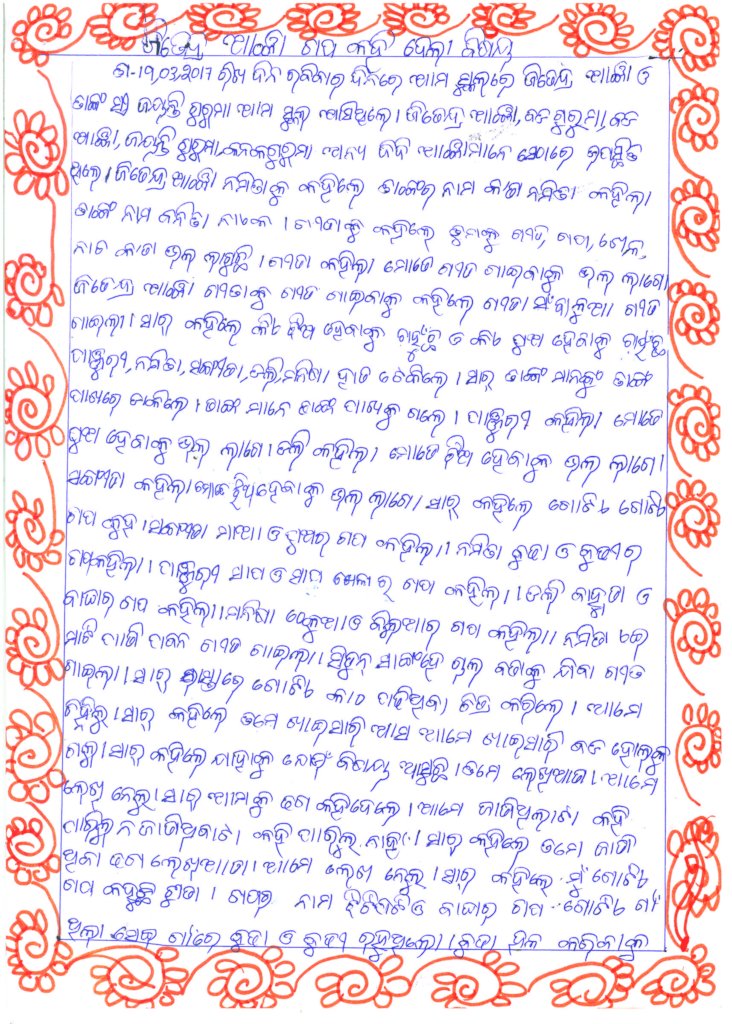 ଜିତେନ୍ଦ୍ର ଆଜ୍ଞା ଗପ କହି ଦେଲା ବିଷୟ
ତା-୧୨,୦୩,୨୦୧୭ ରିଖ ଦିନ ରବିବାର ଦିନରେ ଆମ ସ୍କୁଲରେ ଜିତେନ୍ଦ୍ର ଆଜ୍ଞା ଓ
ତାଙ୍କ ସ୍ତ୍ରୀ ଜୟନ୍ତି ଗୁରୁମା ଆମ ସ୍କୁଲ ଆସିଥିଲେ । ଜିତେନ୍ଦ୍ର ଆଜ୍ଞା, ବଡ ଗୁରୁମା, ବଡ
ଆଜ୍ଞା, ଜୟନ୍ତି ଗୁରୁମା, କନକଗୁରୁମା ଅନ୍ୟ ଦିଦି ଆଜ୍ଞାମାନେ ସେଠାରେ ଉପସ୍ଥିତ
ଥିଲେ । ଜିତେନ୍ଦ୍ର ଆଜ୍ଞା ନମିତାକୁ କହିଲେ ତାଙ୍କର ନାମ କ'ଣ ନମିତା କହିଲା
ତାଙ୍କ ନାମ ନମିତା ନାଏକ । ଗୀତାକୁ କହିଲେ ତୁମକୁ ଗୀତ, ଗପ, ଖେଳ,
ନାଚ କ'ଣ ଭଲ ଲାଗୁଛି । ଗୀତା କହିଲା ମୋତେ ଗୀତ ଗାଇବାକୁ ଭଲ ଲାଗେ ।
ଜିତେନ୍ଦ୍ର ଆଜ୍ଞା ଗୀତାକୁ ଗୀତ ଗାଇବାକୁ କହିଲେ ଗୀତା ସଁବାଳୁଆ ଗୀତ
ଗାଇଲା । ସାର୍ କହିଲେ କିଏ ଝିଅ ହେବାକୁ ଚାହୁଁଛ ଓ କିଏ ପୁଅ ହେବାକୁ ଚାହୁଁଛ
ନମିତା, ସଙ୍ଗୀତା, ଡଲି, ମନିଷା ହାତ ଟେକିଲେ । ସାର୍ ତାଙ୍କ ମାନଙ୍କୁ ତାଙ୍କ
ପାଖରେ ଡାକିଲେ । ତାଙ୍କ ମାନେ ତାଙ୍କ ପାଖକୁ ଗଲେ । କହିଲା ମୋତେ
ପୁଅ ହେବାକୁ ଭଲ ଲାଗେ । ଡଲି କହିଲା ମୋତେ ଝିଅ ହେବାକୁ ଭଲ ଲାଗେ ।
ସଙ୍ଗୀତା କହିଲା ମୋତେ ଝିଅହେବାକୁ ଭଲ ଲାଗେ । ସାର୍ କହିଲେ ଗୋଟିଏ ଗୋଟିଏ
ଗପ କୁହ । ସଙ୍ଗୀତା ମାଆ ଓ ପୁଅର ଗପ କହିଲା । ନମିତା ବୁଢା ଓ ବୁଢୀ ର
ଗପକହିଲା । ସାପ ଓ ସାପ ଖେଳା ର ଗପ କହିଲା । ଡଲି ଓ
ବାଘର ଗପ କହିଲା । ମନିଷା ଠେକୁଆ ଓ ବିଲୁଆର ଗପ କହିଲା । ନମିତା
ମାଟି ପାଣି ପବନ ଗୀତ ଗାଇଲା । ଚାଲ ଯିବା ଗୀତ
ଗାଇଲା । ସାର୍ ଗୋଟିଏ ଚିତ୍ର କରିଲେ । ଆମେ
ଚିହ୍ନିଲୁ । ସାର୍ କହିଲେ ତମେ ଖାଇସାରି ଆସ ଆମେ ଖାଇସାରି ବଡ ହୋଲକୁ
ଗଲୁ । ସାର୍ କହିଲେ ଯାହାକୁ ଯୋଉଁ ବିଷୟ ଆସୁଛି । ତମେ ଲେଖିଆଣ । ଆମେ
ଲେଖି ନେଲୁ । ସାର୍ ଆମକୁ ଢଗ କହିଦେଲେ । ଆମେ ଜାଣିଥିଲାଟା କହି
ପାରୁଲୁ ନ ଜାଣିଥିବାଟା କହି ପାରୁଲୁ ନାହିଁ । ସାର୍ କହିଲେ ତମେ ଜାଣି
ଥିବା ଢଗ ଲେଖିଆଣ । ଆମେ ଲେଖି ନେଲୁ । ସାର୍ କହିଲେ ମୁଁ ଗୋଟିଏ
ଗପ କହୁଛି ଶୁଣ । ଗପର ନାମ ଓ ବାଘର ଗପ ଗୋଟିଏ ଗାଁ
ଥିଲା ସେଇ ଗାଁରେ ବୁଢା ଓ ବୁଢୀ ରହୁଥିଲେ । ବୁଢା ହଳ କରବାକୁ